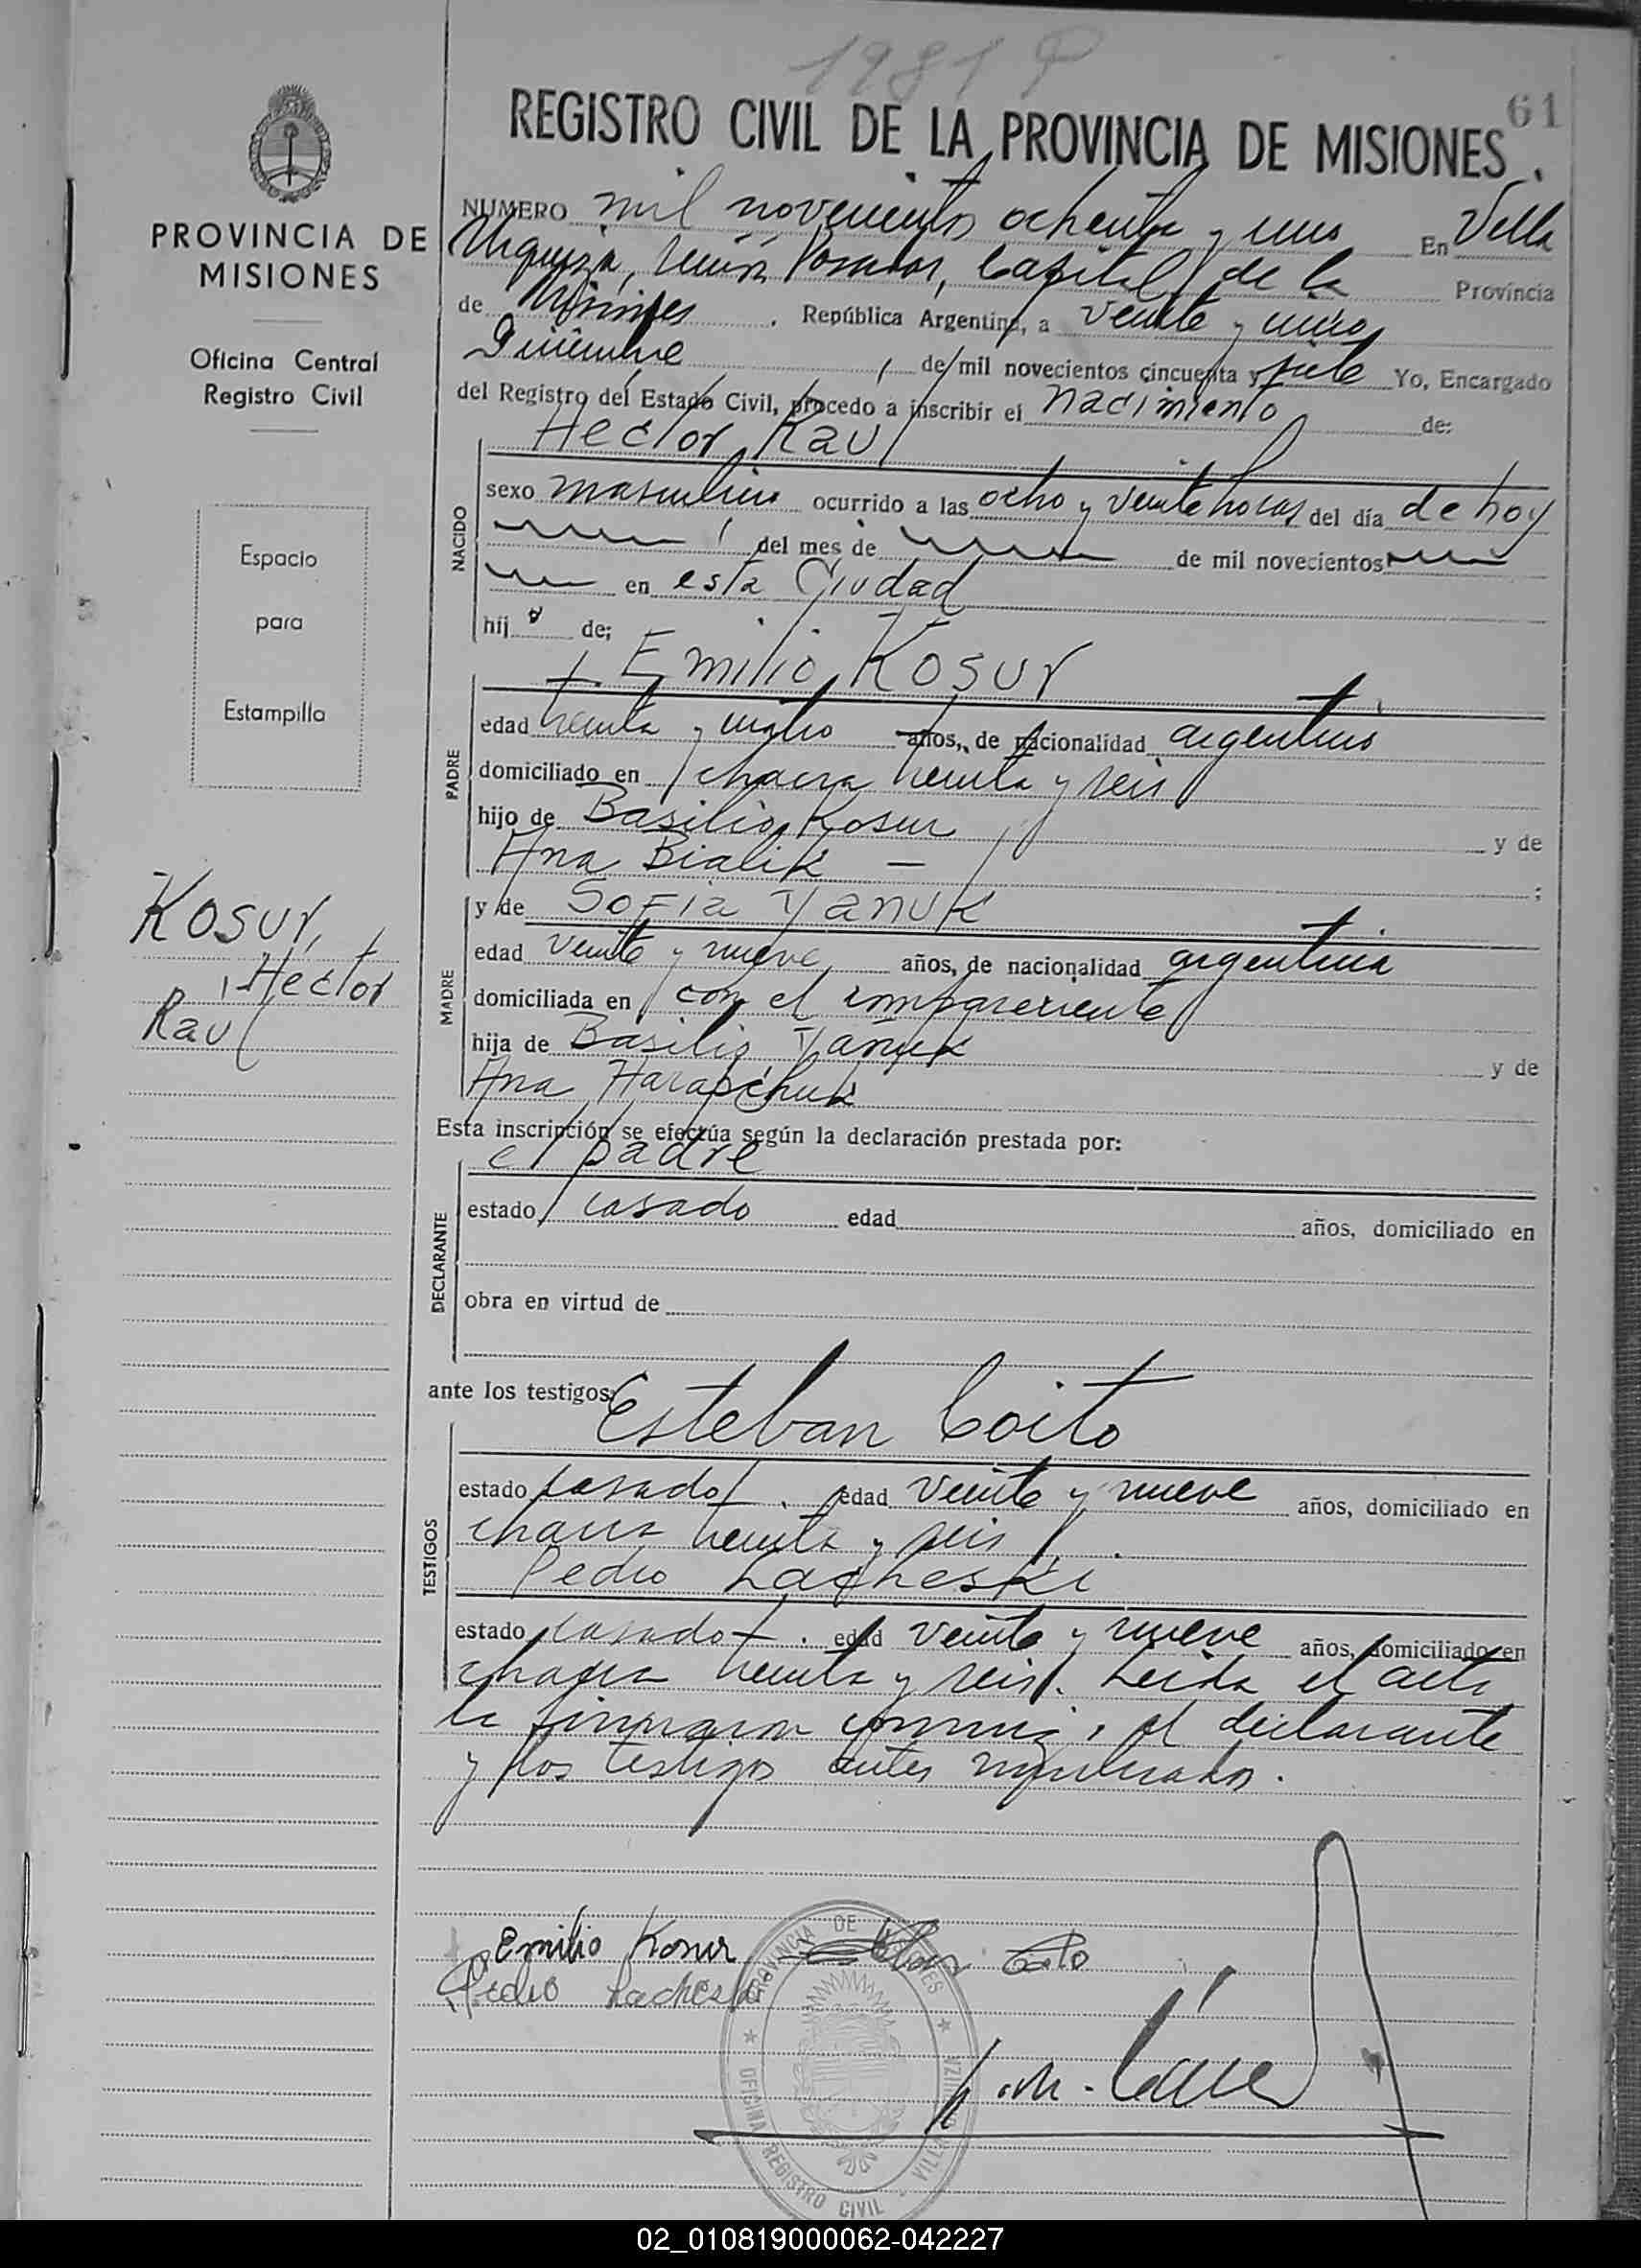 1981 P
61
REGISTRO CIVIL DE LA PROVINCIA DE MISIONES
PROVINCIA DE
MISIONES
Oficina Central
Registro Civil
Espacio
para
Estampilla
Kosur,
Hector
Raul
NUMERO mil novecientos ochenta y uno En Villa
Urquiza, Posadas, Capital de la Provincia
de Misiones. República Argentina, a veinte y cinco
Diciembre, de mil novecientos cincuenta y siete Yo, Encargado
del Registro del Estado Civil, procedo a inscribir el nacimiento de:
Hector Raul
NACIDO
sexo masculino ocurrido a las ocho y veinte horas del día de hoy
del mes de de mil novecientos
en esta Ciudad
hijo de;
Emilio Kosur
PADRE
edad treinta y cuatro años, de nacionalidad argentino
domiciliado en chacra treinta y seis
hijo de Basilio Kosur y de
Ana Bialik — ;
y de Sofia Yanuk
MADRE
edad veinte y nueve años, de nacionalidad argentina
domiciliada en con el compareciente
hija de Basilio Yanuk y de
Ana Harapchuk
Esta inscripción se efectúa según la declaración prestada por:
el padre
DECLARANTE
estado casado edad años, domiciliado en
obra en virtud de
ante los testigos: Esteban Coito
TESTIGOS
estado casado. edad veinte y nueve años, domiciliado en
chacra treinta y seis.
Pedro Lacheski
estado casado. edad veinte y nueve años, domiciliado en
chacra treinta y seis. Leida el acta
la firmaron conmigo, el declarante
y los testigos antes nombrados.
Emilio Kosur Coito
Pedro Lacheski
PROVINCIA DE MISIONES
OFICINA REGISTRO CIVIL
02_010819000062-042227